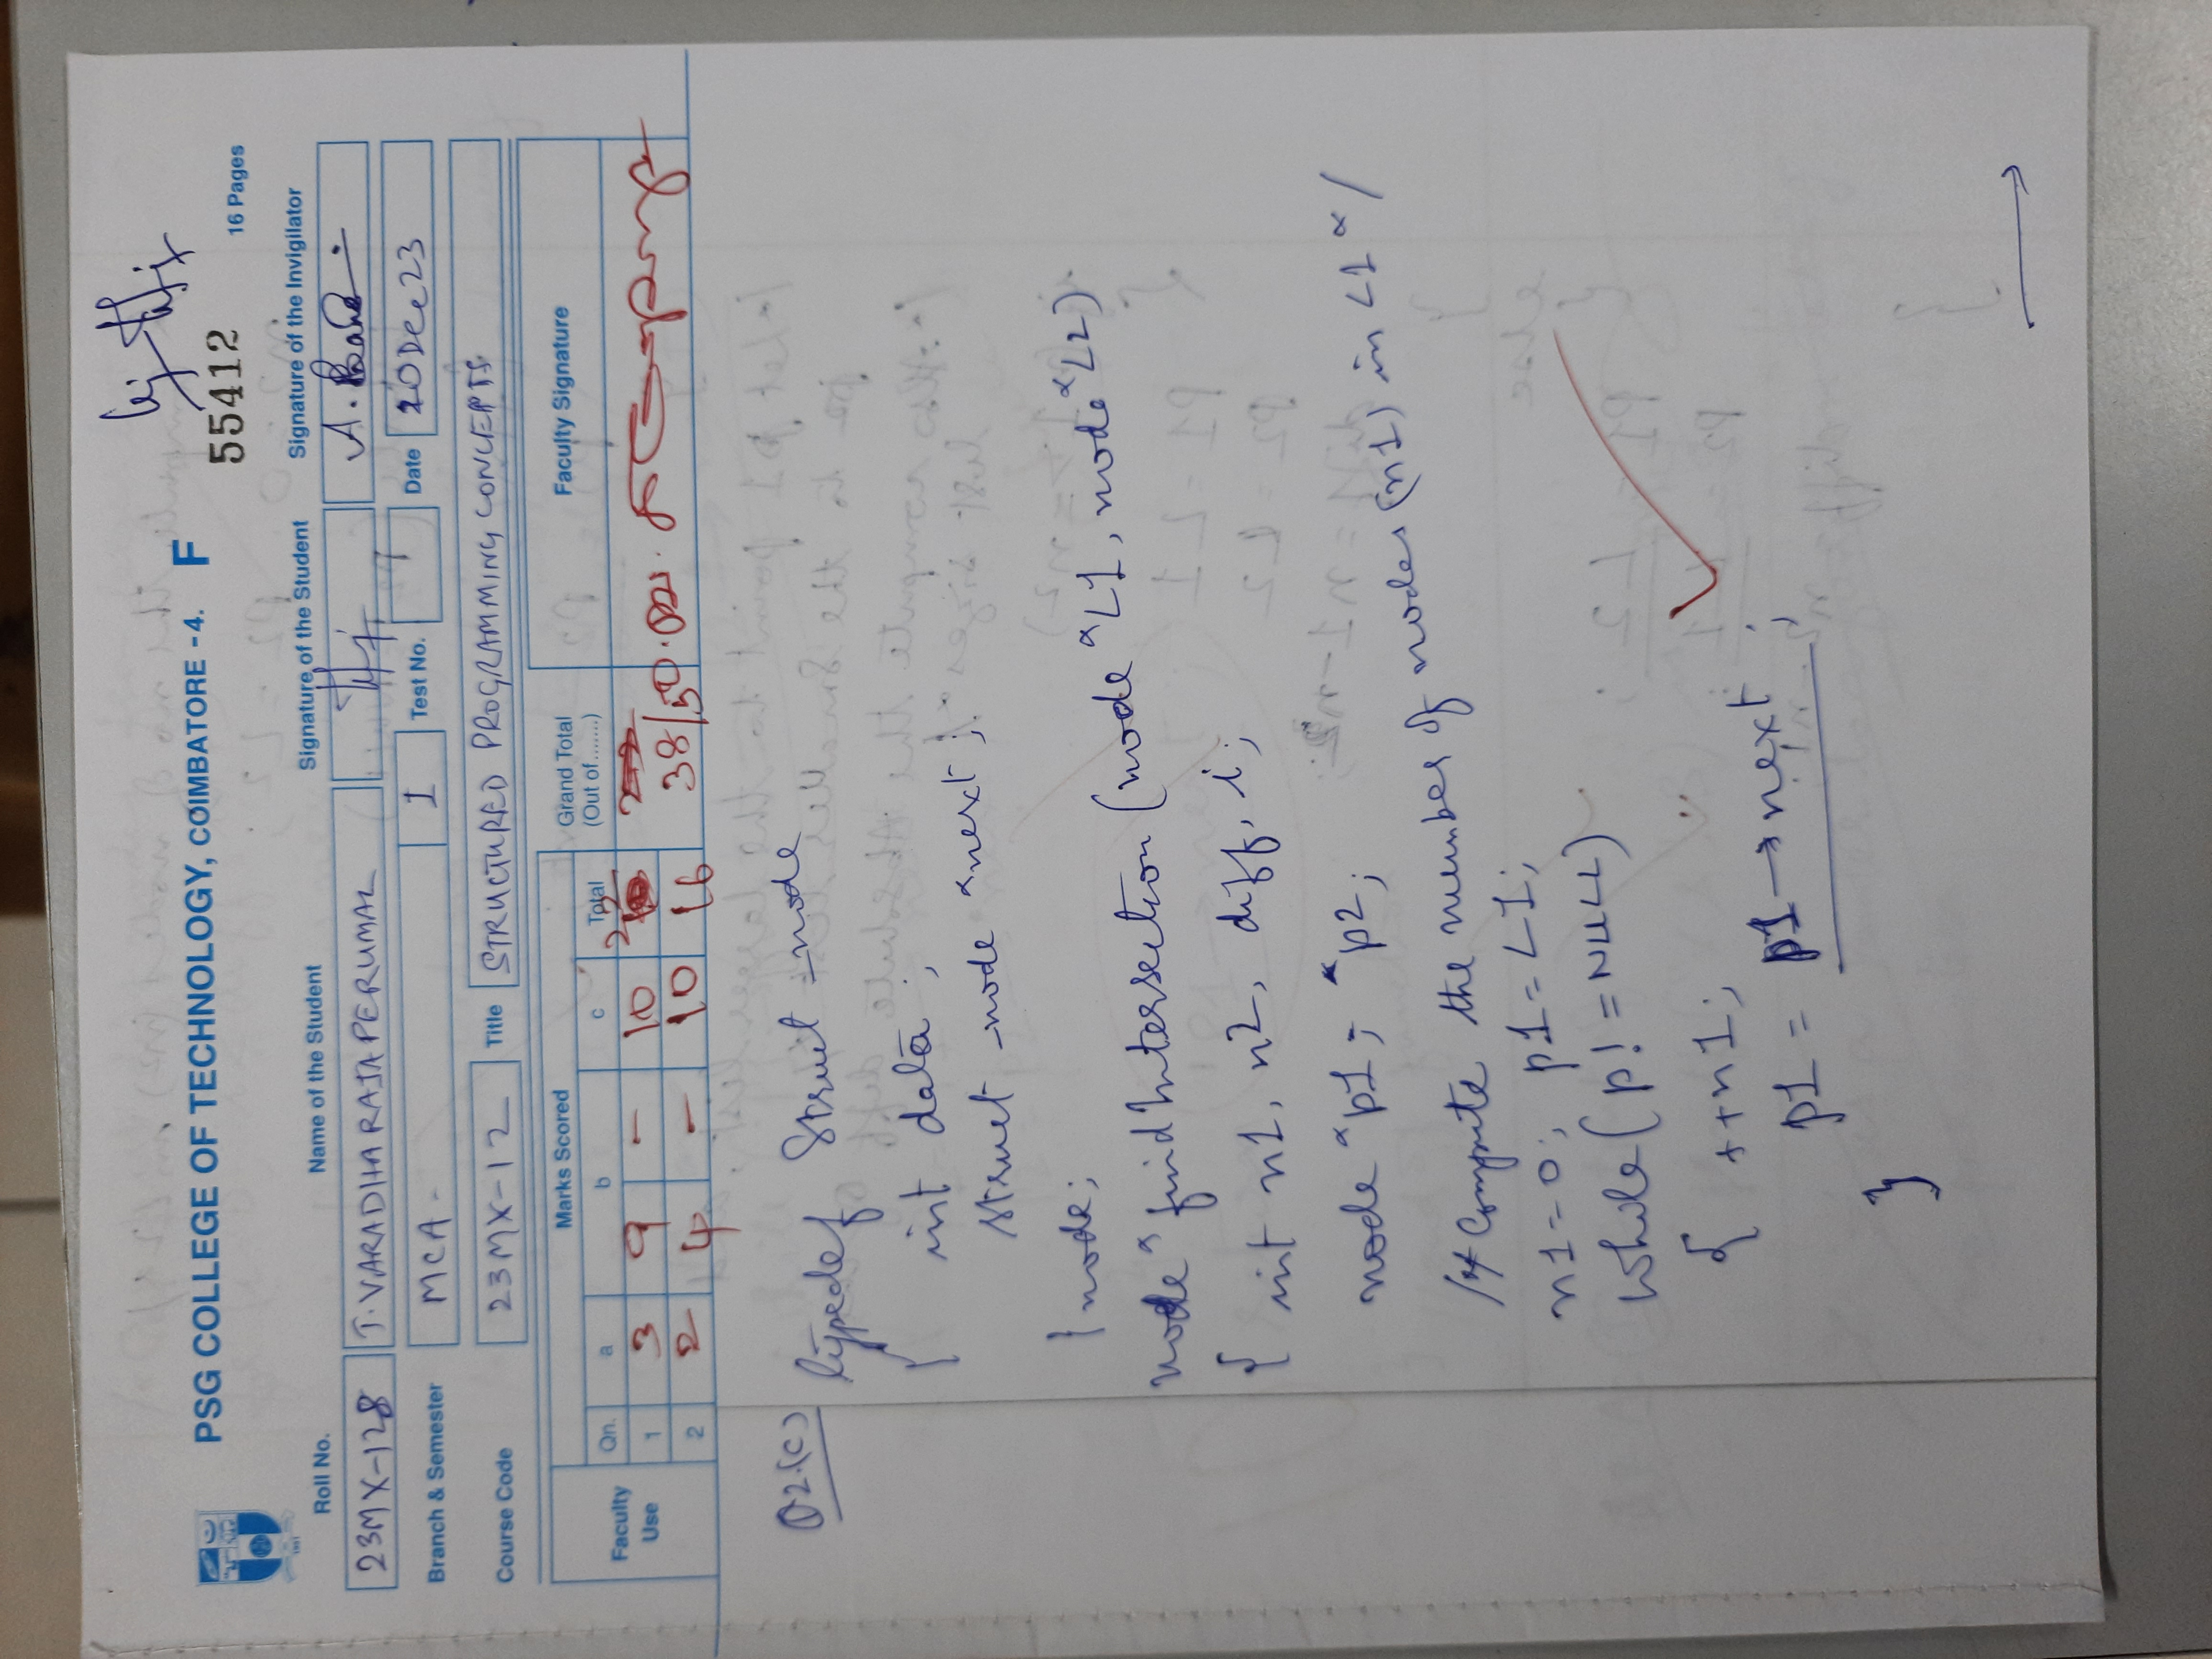 PSG COLLEGE OF TECHNOLOGY, COIMBATORE - 4. F
55412
16 Pages
Roll No. Name of the Student Signature of the Student Signature of the Invigilator
23MX-128 J. VARADHARAJAPERUMAL
Branch & Semester MCA - I Test No. 1 Date 20 Dec 23
Course Code 23MX-12 Title STRUCTURED PROGRAMMING CONCEPTS
Faculty Use Marks Scored Grand Total (Out of.......) Faculty Signature
Qn. a b c Total
1 3 9 - 10 22
2 2 4 - 10 16 38/50
Q2.(c) typedef struct _node
{ int data;
struct _node *next;
} node;
node *findIntersection (node *L1, node *L2)
{ int n1, n2, diff, i;
node *p1; *p2;
/* Compute the number of nodes (n1) in L1 */
n1=0; p1=L1;
while (p! =NULL)
{ ++n1;
p1 = p1→next ;
}